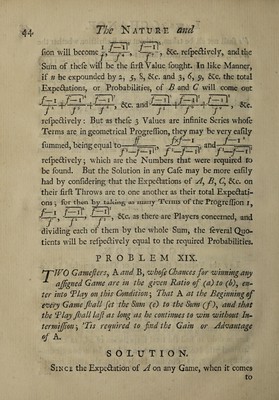 44 The NATURE and
sion will become 1, f−1|¹/f¹, f−1|²/f², &c. respectively, and the
Sum of these will be the first Value sought. In like Manner,
if n be expounded by 2, 5, 8, &c. and 3, 6, 9, &c. the total
Expectations, or Probabilities, of B and C will come out
&c. and &c.
respectively: But as these 3 Values are infinite Series whose
Terms are in geometrical Progression, they may be very easily
summed, being equal to and
respectively; which are the Numbers that were required to
be found. But the Solution in any Case may be more easily
had by considering that the Expectations of A, B, C, &c. on
their first Throws are to one another as their total Expectati-
ons; for then by taking as many Terms of the Progression 1,
&c. as there are Players concerned, and
dividing each of them by the whole Sum, the several Quo-
tients will be respectively equal to the required Probabilities.
PROBLEM XIX.
TWO Gamesters, A and B, whose Chances for winning any
assigned Game are in the given Ratio of (a) to (b), en-
ter into Play on this Condition; That A at the Beginning of
every Game shall set the Sum (e) to the Sum (f), and that
the Play shall last as long as he continues to win without In-
termission; 'Tis required to find the Gain or Advantage
of A.
SOLUTION.
SINCE the Expectation of A on any Game, when it comes
to